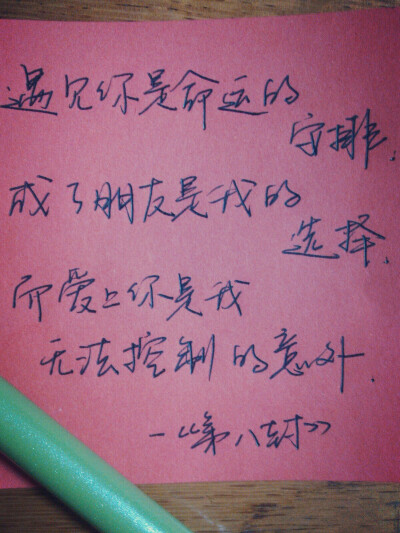 遇见你是命运的
安排.
成了朋友是我的
选择.
而爱上你是我
无法控制的意外.
-《第八封》